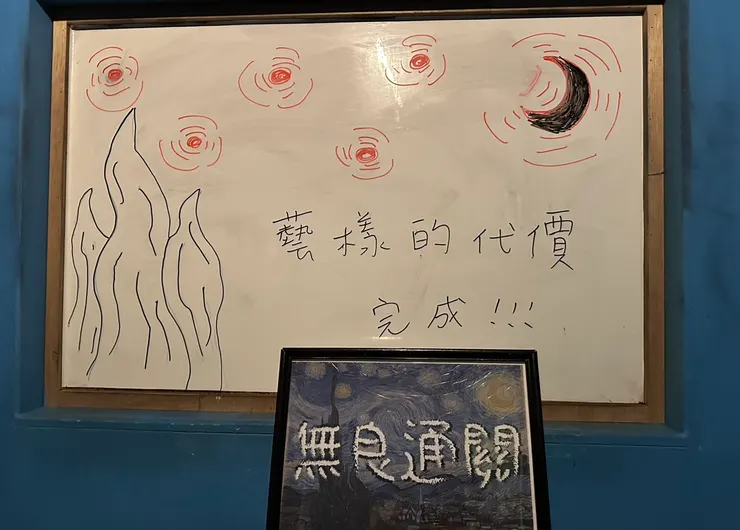 藝樣的代價
完成!!!
無良通關